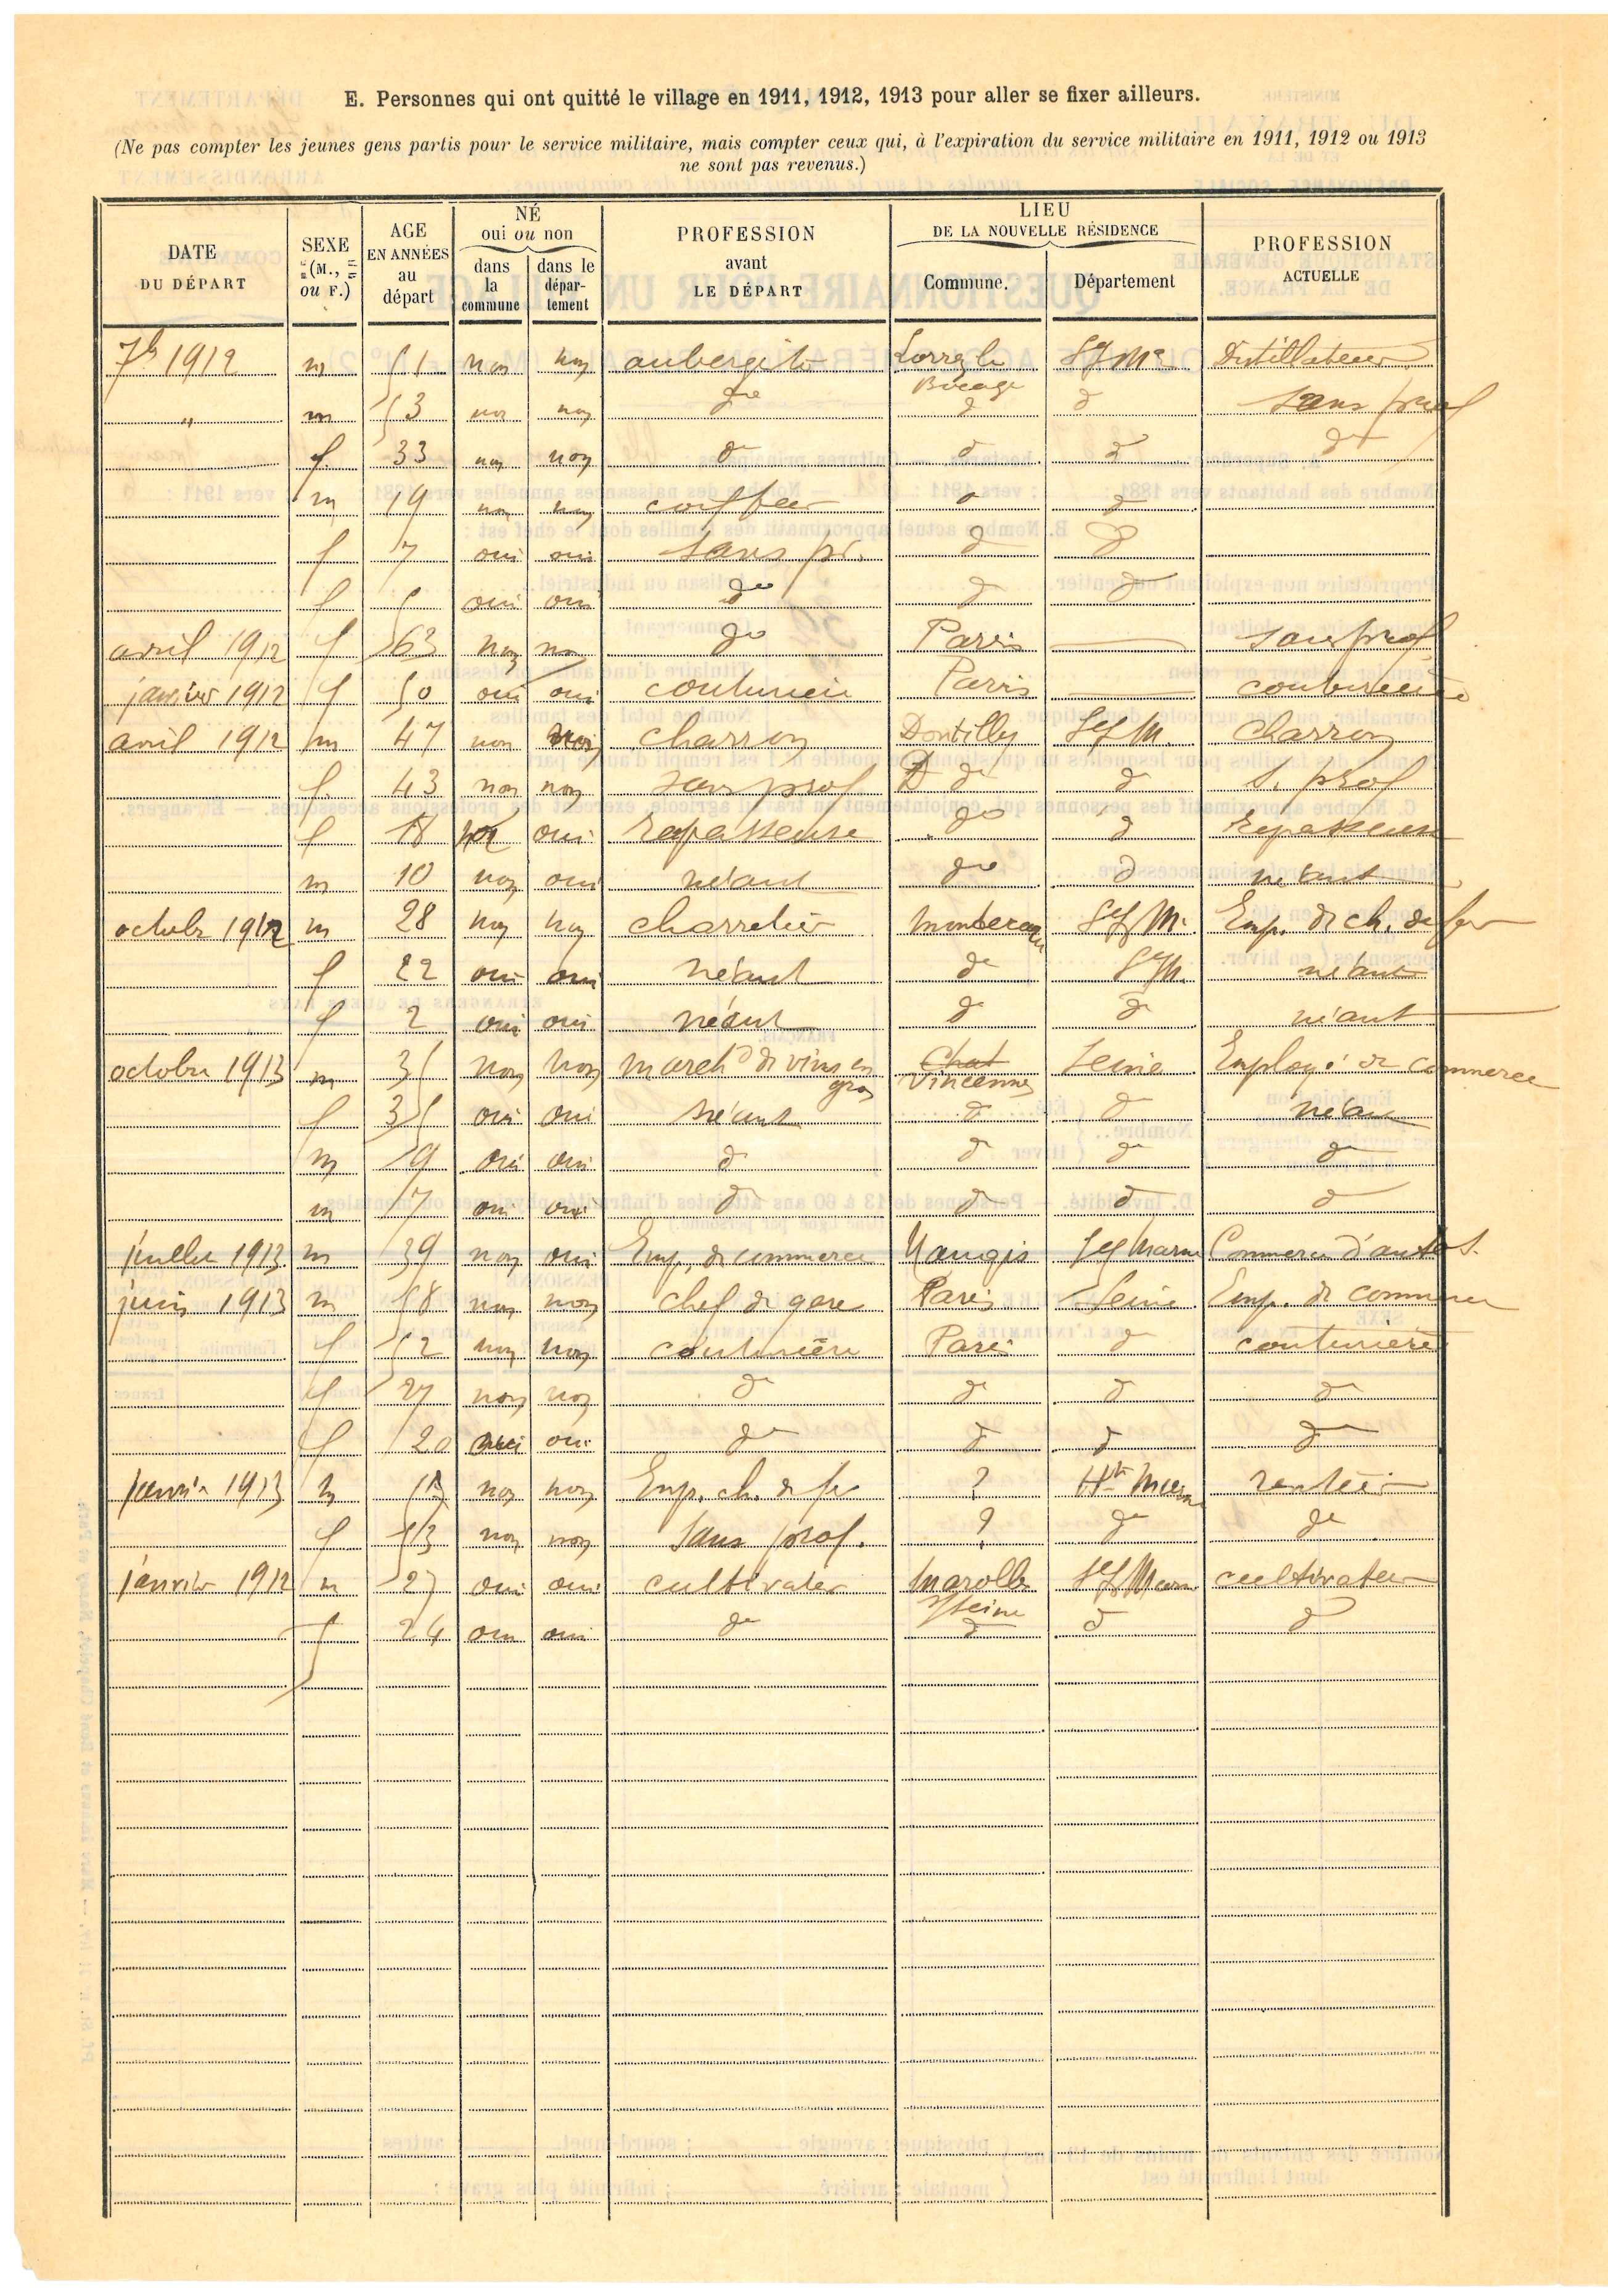 E. Personnes qui ont quitté le village en 1911, 1912, 1913 pour aller se fixer ailleurs.
(Ne pas compter les jeunes gens partis pour le service militaire, mais compter ceux qui, à l'expiration du service militaire en 1911, 1912 ou 1913
ne sont pas revenus.)
DATE DU DÉPART
SEXE (M., OU F.)
AGE EN ANNÉES au départ
NÉ oui ou non
dans la commune
dans le dépar- tement
PROFESSION avant LE DÉPART
LIEU DE LA NOUVELLE RÉSIDENCE
Commune.
Département
PROFESSION ACTUELLE
7b 1912 m 51 non non aubergiste Lorrez le Bocage S et Me Distillateur
" m 53 non non do d d sans prof
f. 33 non non do d d do
m 19 non non coiffeur d d
f 7 oui oui sans pr. d d
f 5 oui oui do d d
avril 1912 f 63 non non do Paris — sans prof
janvier 1912 f 50 oui oui couturière Paris — couturière
avril 1912 m 47 non non charron Dontilly S et M. Charron
f. 43 non non sans prof do d s. prof
f 18 oui repasseuse do d repasseuse
m 10 non oui néant do d néant
octobre 1912 m 28 non non charretier Montereau S et M. Emp. de ch. de fer
f 22 oui oui néant do S et M. néant
f 2 oui oui néant d d néant
octobre 1913 m 35 non non march d de vins en gros Chat Vincennes Seine Employé de commerce
f 35 oui oui néant d d néant
m 9 oui oui d d do do
m 7 oui oui d d d d
juillet 1913 m 39 non oui Emp. de commerce Nangis S et Marne Commerce d'autos.
juin 1913 m 58 non non chef de gare Paris Seine Emp. de commerce
f 52 non non couturière Paris d couturière
f 27 non non d d d d
f 20 oui do d d do
janvier 1913 m non non Emp. ch. de fer ? Hte Marne rentier
f 53 non non Sans prof. ? do do
janvier 1912 m 27 oui oui cultivateur Marolles s/ Seine S et Marne cultivateur
f 24 oui oui do d d d